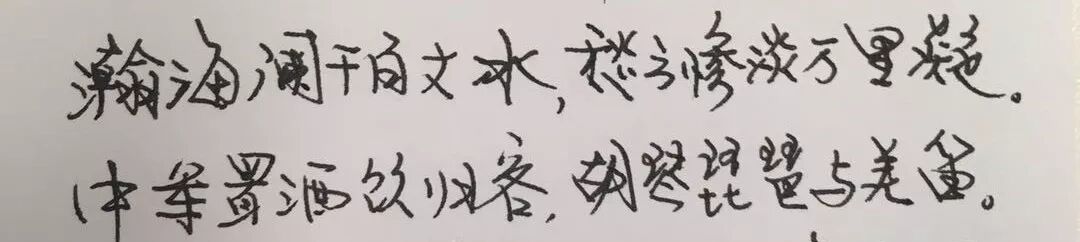 瀚海阑干百丈冰,愁云惨淡万里凝。
中军置酒饮归客,胡琴琵琶与羌笛。